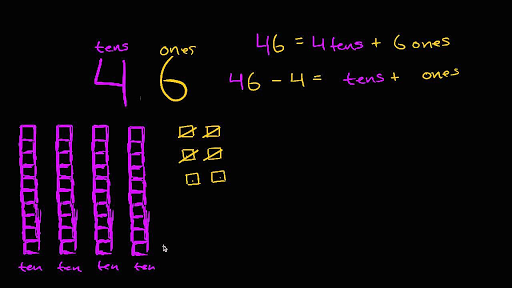 tens ones
46
46 = 4 tens + 6 ones
46 - 4 = tens + ones
ten ten ten ten